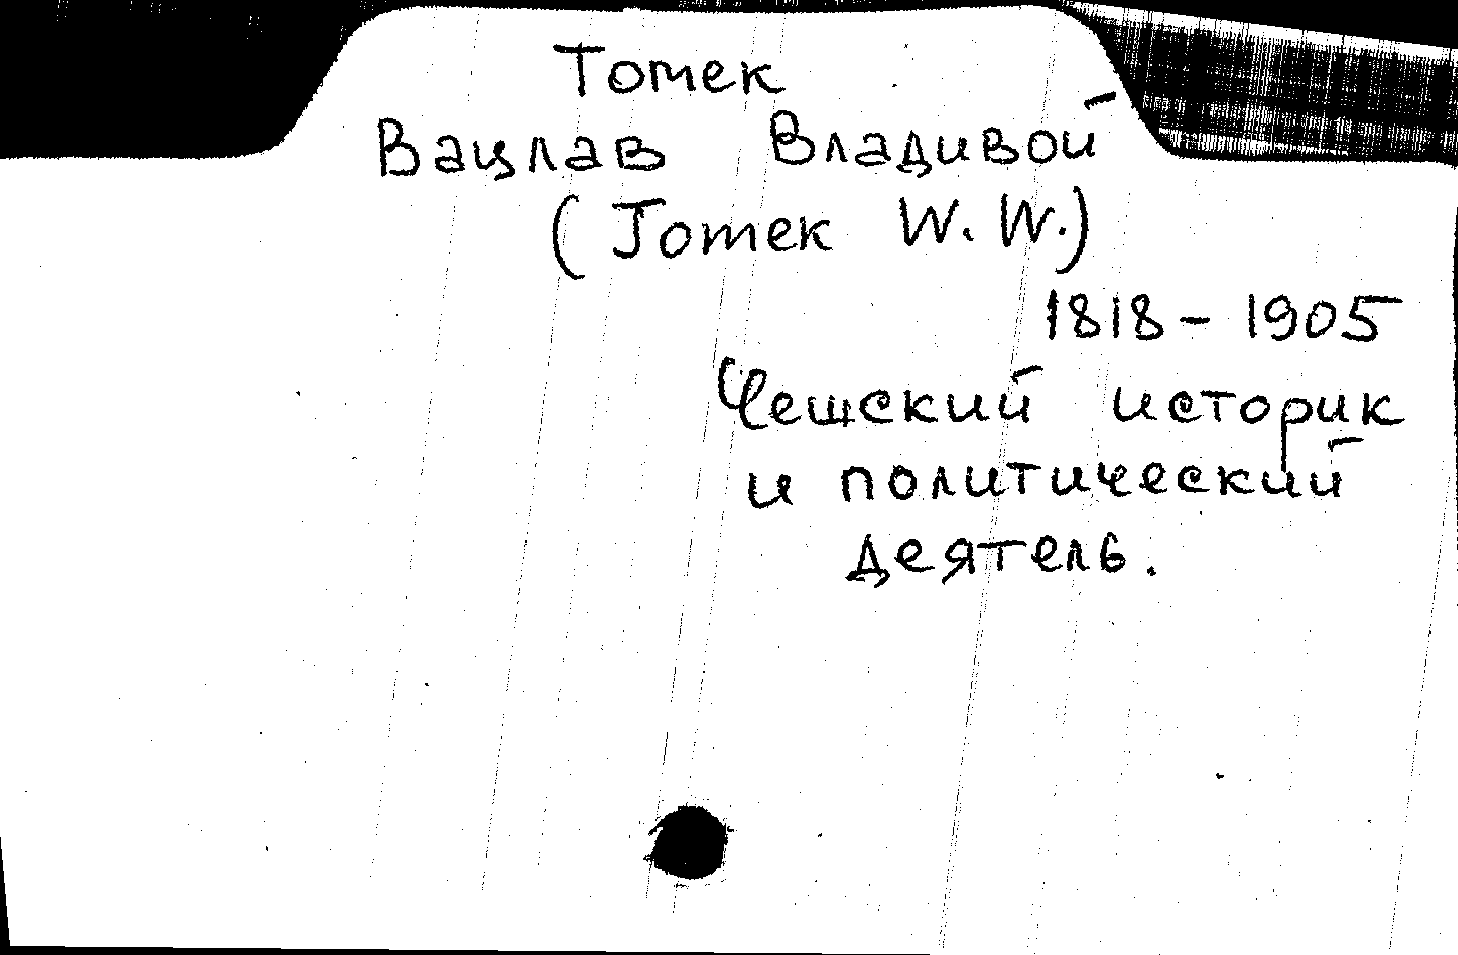 Томек
Вацлав Владивой
(Tomek W. W.)
1818 – 1905
Чешский историк
и политический
деятель.